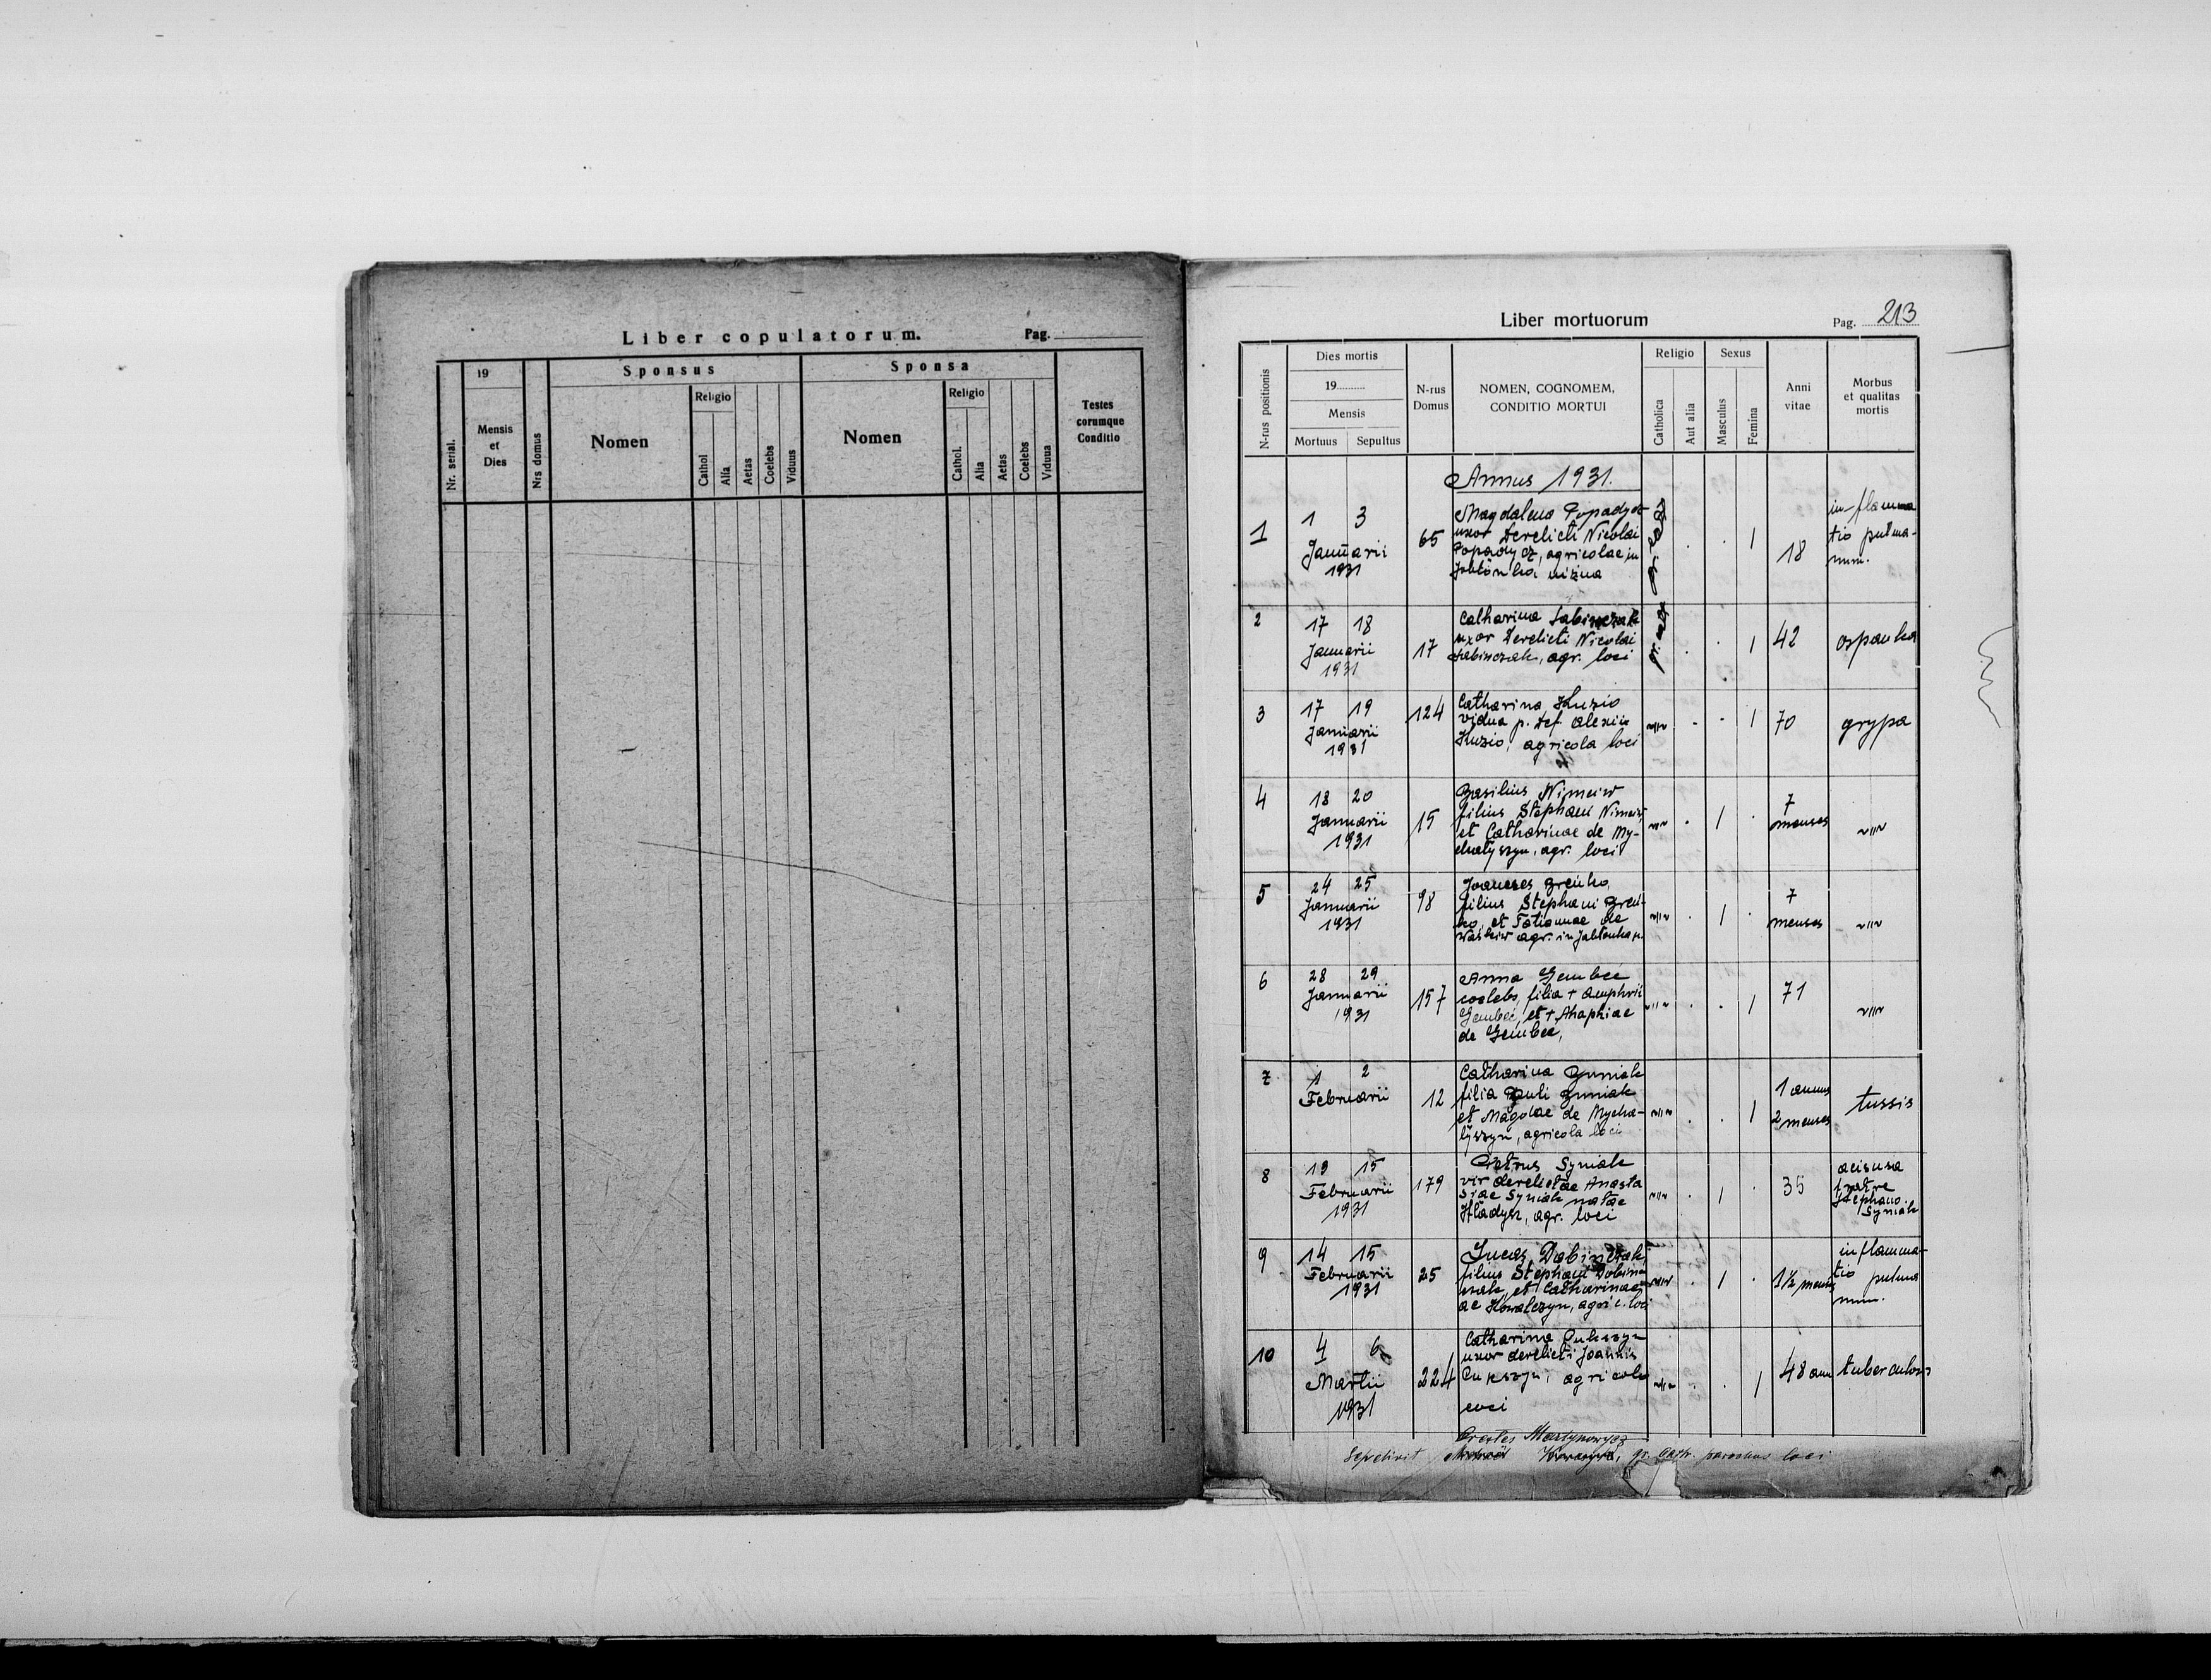 Liber copulatorum.
Pag.
Nr. serial.
19
Mensis
et
Dies
Nrs domus
Sponsus
Nomen
Religio
Cathol
Alia
Aetas
Coelebs
Viduus
Sponsa
Nomen
Religio
Cathol.
Alia
Aetas
Coelebs
Vidua
Testes
eorumque
Conditio
Liber mortuorum
Pag. 213
N-rus positionis
Dies mortis
19
Mensis
Mortuus
Sepultus
N-rus
Domus
NOMEN, COGNOMEN,
CONDITIO MORTUI
Religio
Catholica
Aut alia
Sexus
Masculus
Femina
Anni
vitae
Morbus
et qualitas
mortis
Annus 1931.
1
1 3
Januarii
1931
65
Magdalena Popadycz
uxor derelicti Nicolai
Popadycz, agricolae in
Jabłonka niżna
1
18
inflamma
tio pulmo-
num.
2
17 18
Januarii
1931
17
Catharina
uxor derelicti Nicolai
agr. loci
gr. cath.
1
42
ospanka
3
17 19
Januarii
1931
124
Catharina Kuzio
vidua p. def. Alexii
Kuzio, agricola loci
~"~
1
70
grypa
4
18 20
Januarii
1931
15
Basilius Nimciw
filius Stephani Nimciw
et Catharinae de My-
chałyszyn, agr. loci
~"~
1
7
menses
~"~
5
24 25
Januarii
1931
98
Joannes Hreńko,
filius Stephani Hreń-
ko, et Tatiannae de
Waśkiw agr. in Jabłonka n.
~"~
1
7
menses
~"~
6
28 29
Januarii
1931
157
Anna Gembec
coelebs, filia + Onuphrii
Gembec, et + Ahaphiae
de Gembec,
~"~
1
71
~"~
7
1 2
Februarii
12
Catharina
filia Pauli
et Magdae de Mycha-
łyszyn, agricola loci
~"~
1
1 annus
2 menses
tussis
8
13 15
Februarii
1931
179
Petrus Syniak
vir derelictae Anasta
siae Syniak natae
Hładysz, agr. loci
~"~
1
35
fratre
Stephano
Syniak
9
14 15
Februarii
1931
25
Lucas Dobinczak,
filius Stephani Dobin
czak, et Catharinae
de Kowalczyn, agric. loci
~"~
1
1½ mens
inflamma-
tio pulmo
num.
10
4 6
Martii
1931
224
Catharina Cukszyn
uxor derelicti Joannis
Cukszyn, agricola
loci
~"~
1
48 ann
tuberculosis
Orestes Martynowycz
Sepelivit gr. cath. parochus loci